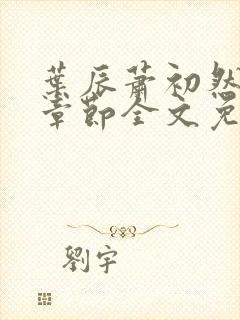 葉辰蕭初然
章節全文免
劉宇